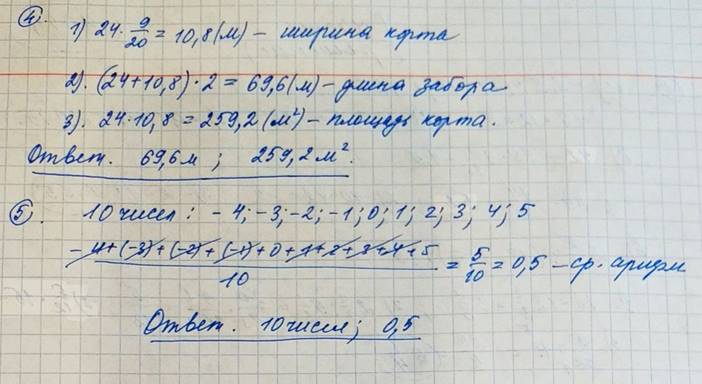 ④. 1) 24 · 9/20 = 10,8 (м) – ширина корта
2). (24+10,8) · 2 = 69,6 (м) – длина забора
3). 24 · 10,8 = 259,2 (м²) – площадь корта.
Ответ. 69,6 м ; 259,2 м².
⑤. 10 чисел : – 4; –3; –2; –1; 0; 1; 2; 3; 4; 5
–4+(–3)+(–2)+(–1)+0+1+2+3+4+5
/10 = 5/10 = 0,5 – ср. арифм
Ответ. 10 чисел; 0,5